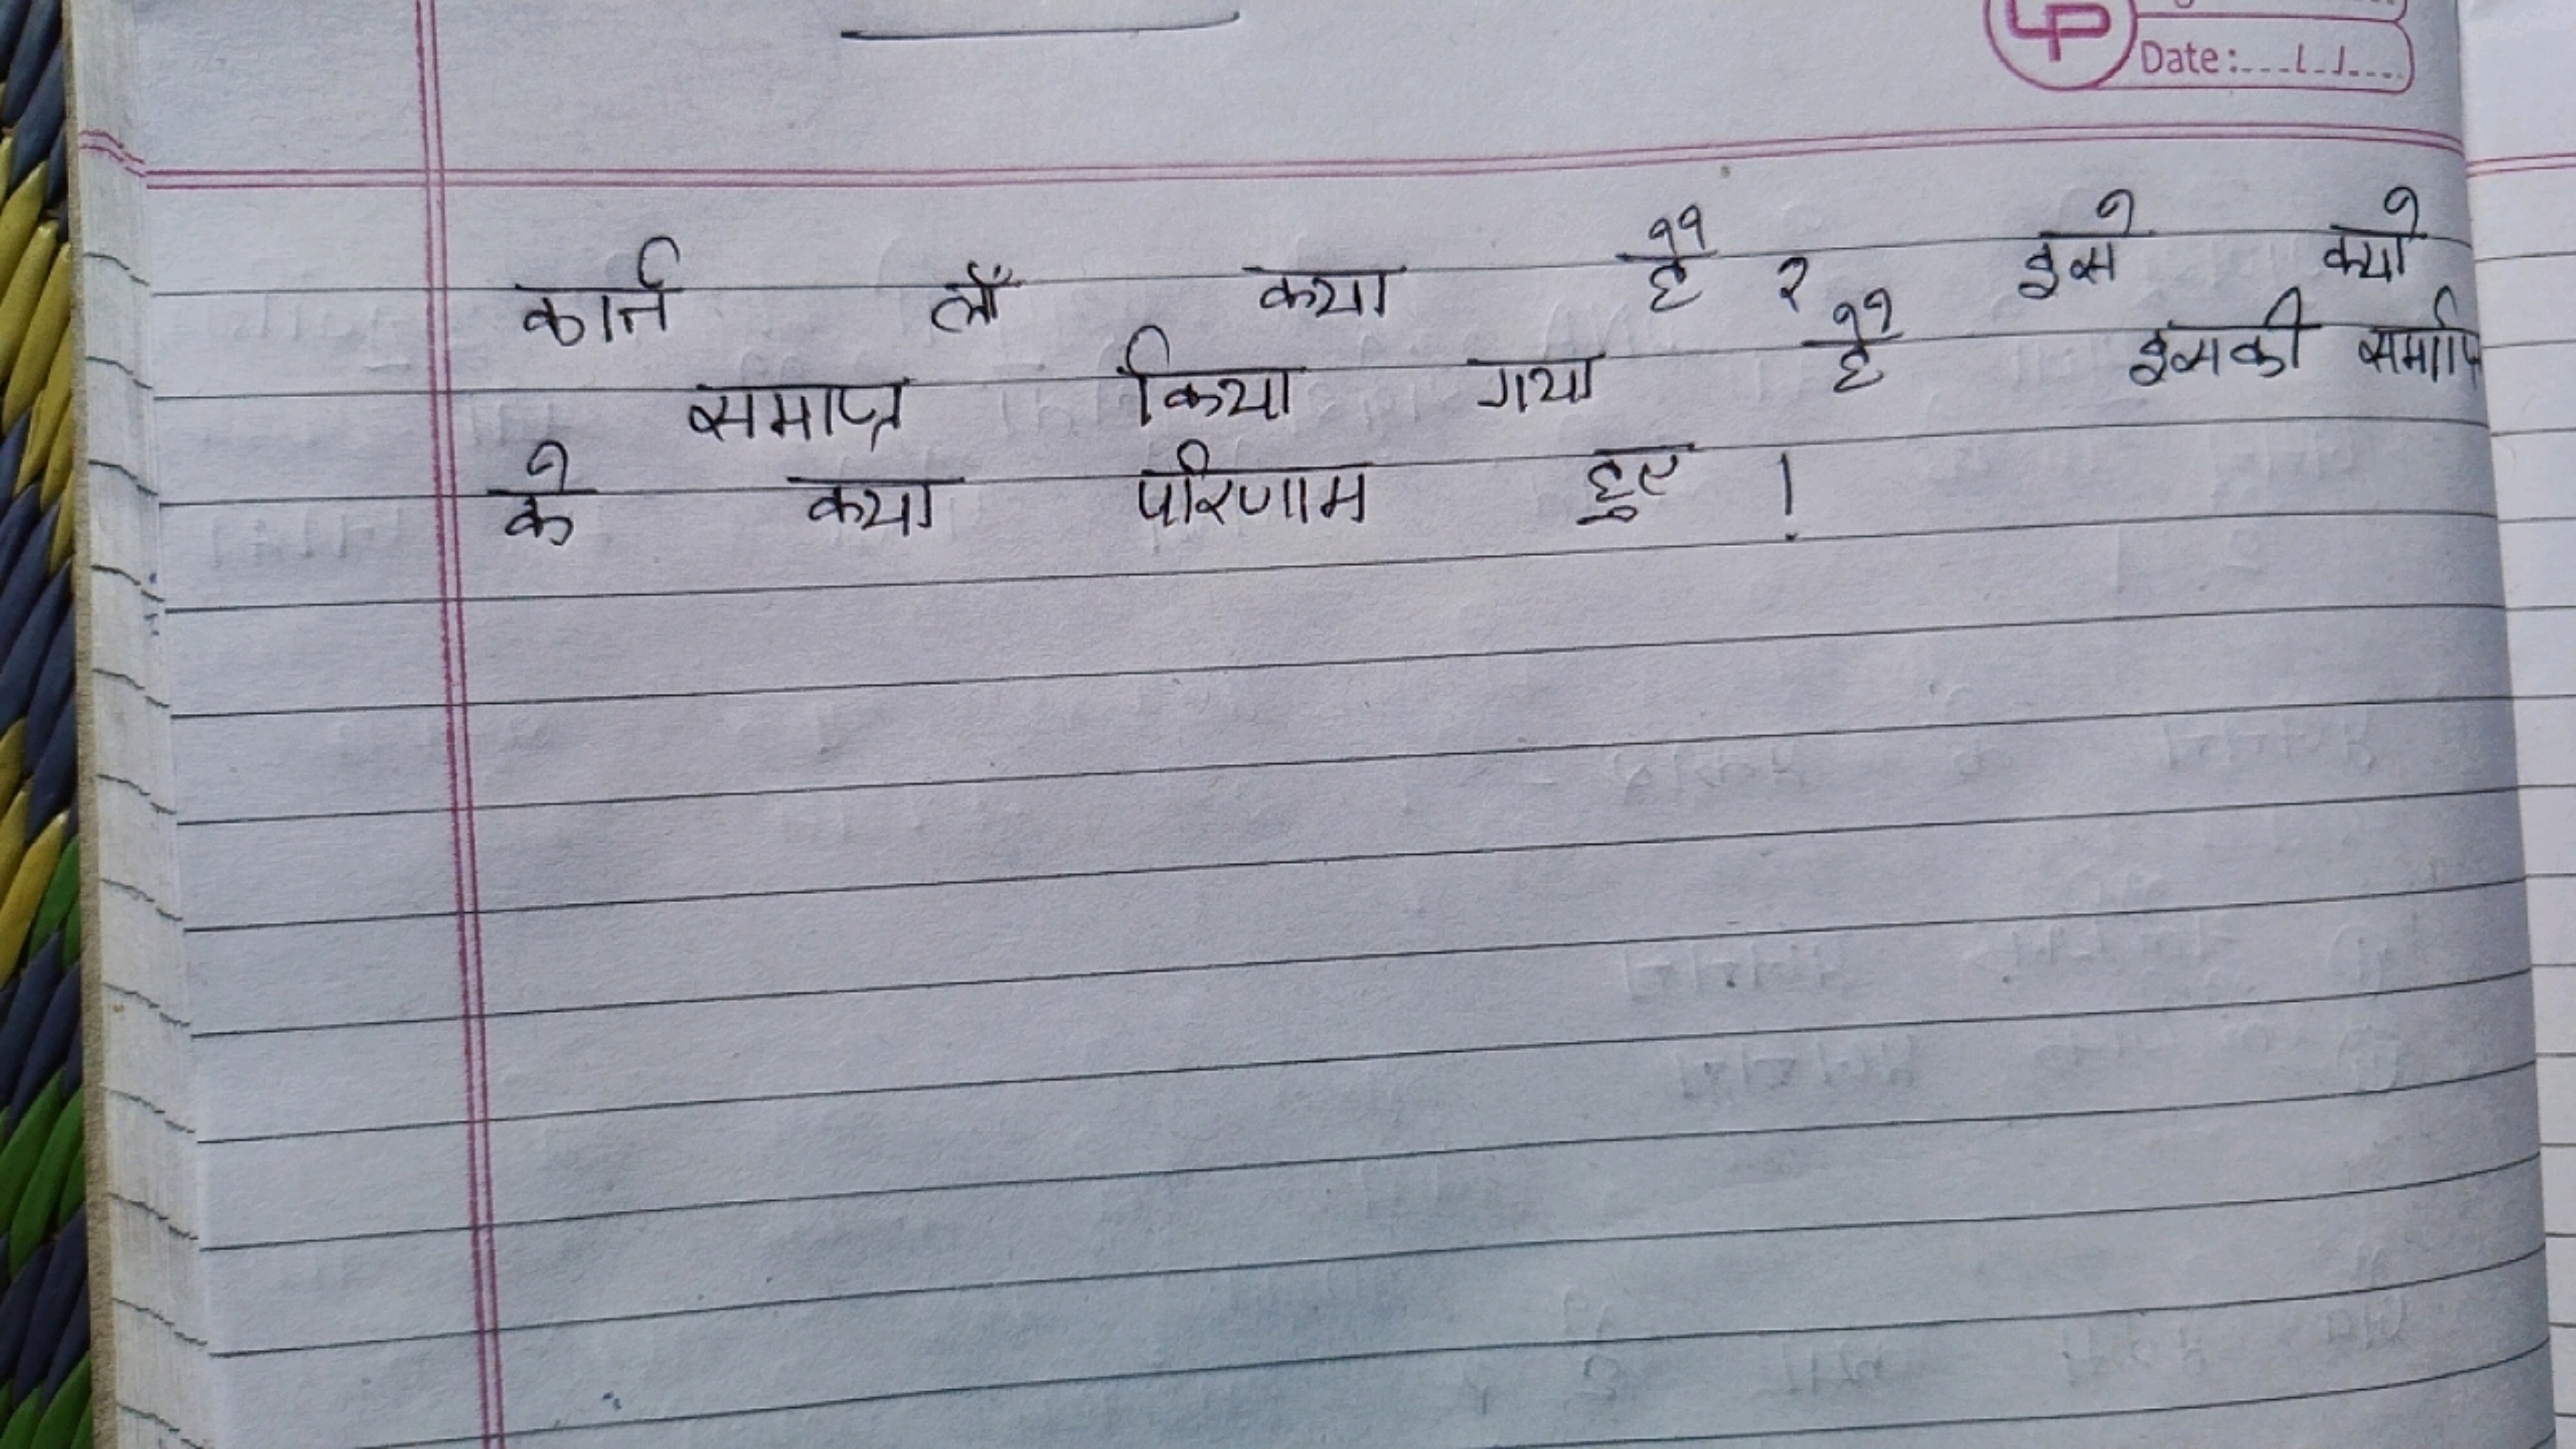 Date:...l.l....
कार्न लॉं क्या है ? इसे क्यो
समाप्त किया गया है इसकी समाप्ति
के क्या परिणाम हुए !